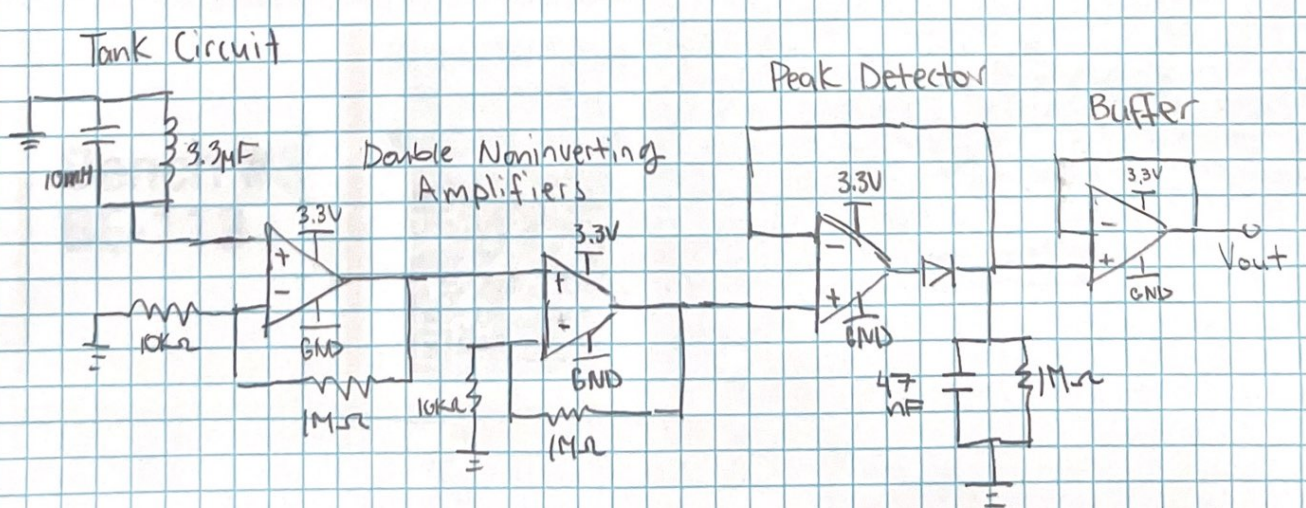 Tank Circuit
10mH
3.3μF
Double Noninverting
Amplifiers
3.3V
+
-
GND
10KΩ
1MΩ
3.3V
+
-
GND
10KΩ
1MΩ
Peak Detector
3.3V
-
+
GND
47
nF
1MΩ
Buffer
3.3V
-
+
GND
Vout